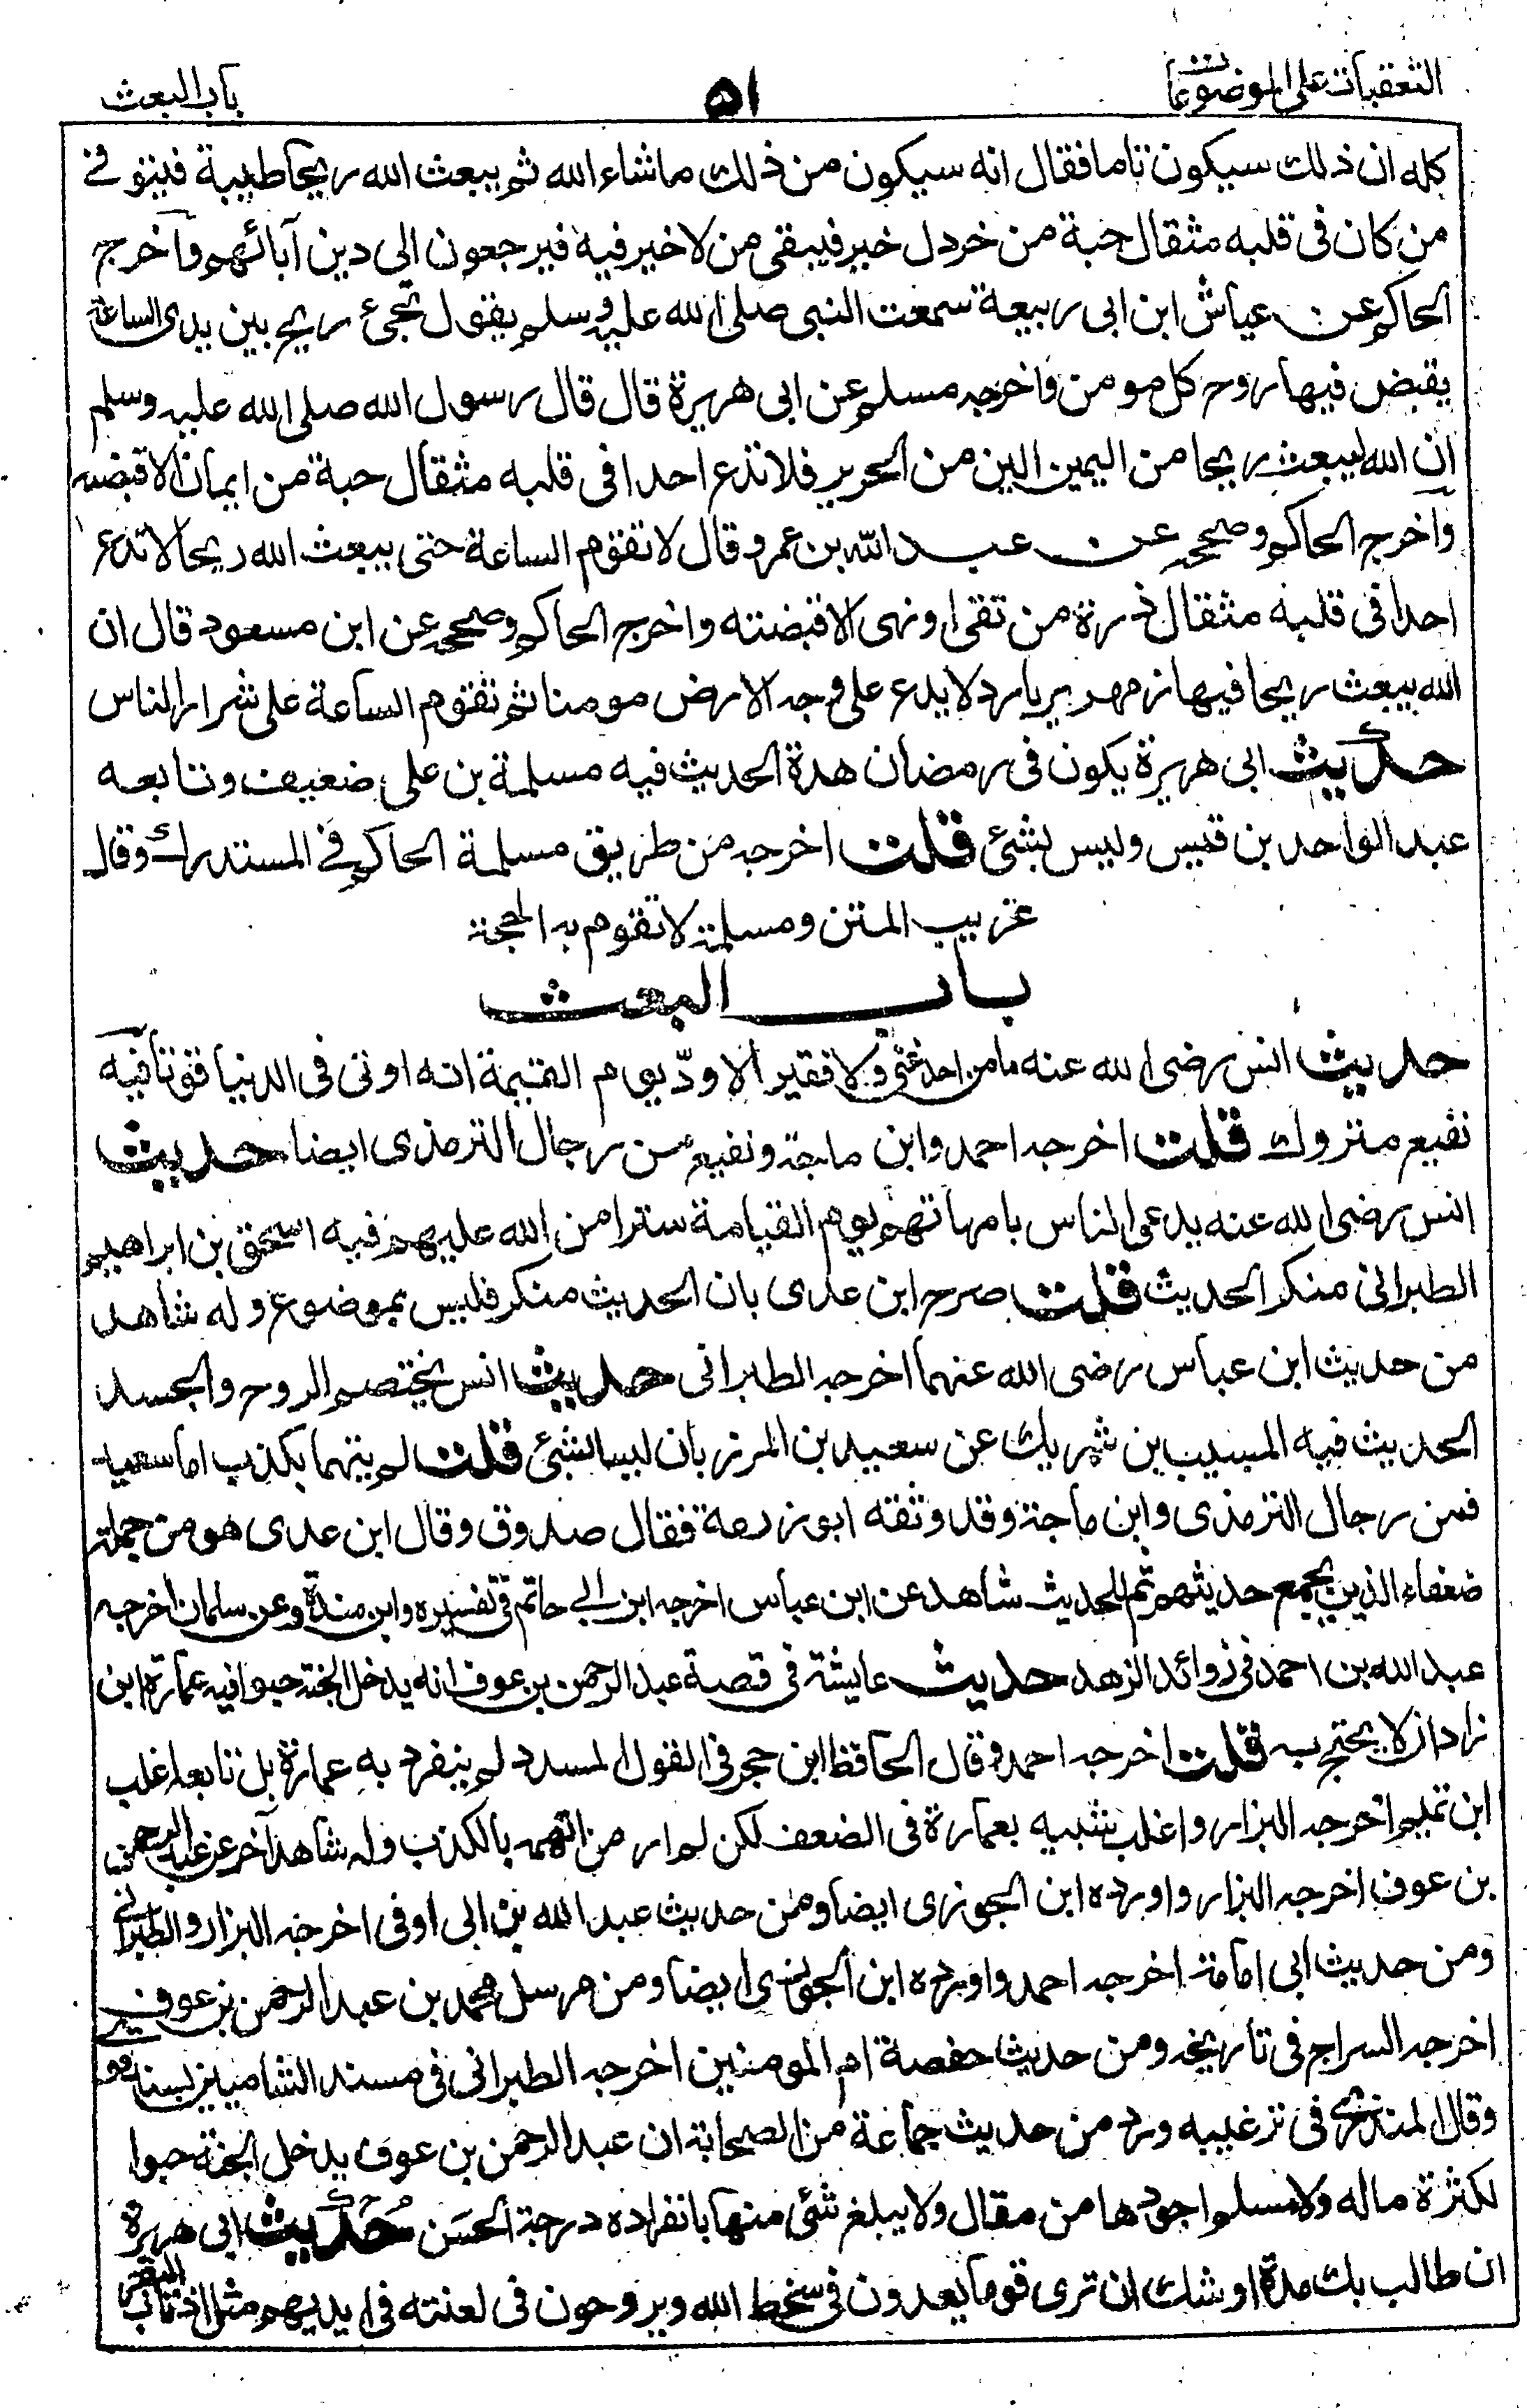 التعقبات على الموضوعات
٥١
باب البعث
كله ان ذلك سيكون تاما فقال انه سيكون من ذلك ماشاء الله ثم يبعث الله ريحا طيبة فيتوفى
من كان فى قلبه مثقال حبة من خردل خير فيبقى من لا خير فيه فيرجعون الى دين آبائهم وآخرج
الحاكم عن عياش ابن ابى ربيعة سمعت النبى صلى الله عليه وسلم يقول تجئ ريح بين يدى الساعة
يقبض فيها روح كل مومن واخرجه مسلم عن ابى هريرة قال قال رسول الله صلى الله عليه وسلم
ان الله ليبعث ريحا من اليمين الين من الحرير فلا تدع احدا فى قلبه مثقال حبة من ايمان الا قبضته
وآخرج الحاكم وصححه عن عبد الله بن عمرو قال لا تقوم الساعة حتى يبعث الله ريحا لا تدع
احدا فى قلبه مثقال ذرة من تقى او نهى الا قبضته واخرج الحاكم وصححه عن ابن مسعود قال ان
الله يبعث ريحا فيها زمهرير بارد لا يدع على وجه الارض مومنا ثم تقوم الساعة على شرار الناس
حديث ابى هريرة يكون فى رمضان هدة الحديث فيه مسلمة بن على ضعيف وتابعه
عبد الواحد بن قيس وليس بشئ قلت اخرجه من طريق مسلمة الحاكم فى المستدرك وقال
غريب المتن ومسلمة لا تقوم به الحجة
باب البعث
حديث انس رضى الله عنه ما من احد غنى ولا فقير الا ودّ يوم القيمة انه اوتى فى الدنيا قوتا فيه
نفيع متروك قلت اخرجه احمد وابن ماجة ونفيع من رجال الترمذى ايضا حديث
انس رضى الله عنه يدعى الناس بامهاتهم يوم القيامة سترا من الله عليهم فيه اسحق بن ابراهيم
الطبرانى منكر الحديث قلت صرح ابن عدى بان الحديث منكر فليس بموضوع وله شاهد
من حديث ابن عباس رضى الله عنهما اخرجه الطبرانى حديث انس يختصم الروح والجسد
الحديث فيه المسيب بن شريك عن سعيد بن المرزبان ليسا بشئ قلت لم يتهما بكذب اما سعيد
فمن رجال الترمذى وابن ماجة وقد وثقه ابو زرعة فقال صدوق وقال ابن عدى هو من جملة
ضعفاء الذين يجمع حديثهم ثم للحديث شاهد عن ابن عباس اخرجه ابن ابى حاتم فى تفسيره وابن مندة وعن سلمان اخرجه
عبد الله بن احمد فى زوائد الزهد حديث عايشة فى قصة عبد الرحمن بن عوف انه يدخل الجنة حبوا فيه عمارة ابن
زاداز لا يحتج به قلت اخرجه احمد وقال الحافظ ابن حجر فى القول المسدد لم ينفرد به عمارة بل تابعه اغلب
ابن تميم اخرجه البزار واغلب شبيه بعمارة فى الضعف لكن لم ار من اتهمه بالكذب وله شاهد آخر عن عبد الرحمن
بن عوف اخرجه البزار واورده ابن الجوزى ايضا ومن حديث عبد الله بن ابى اوفى اخرجه البزار والطبرانى
ومن حديث ابى امامة اخرجه احمد واورده ابن الجوزى ايضا ومن مرسل محمد بن عبد الرحمن بن عوف
اخرجه السراج فى تاريخه ومن حديث حفصة ام المومنين اخرجه الطبرانى فى مسند الشاميين بسند
وقال المنذرى فى ترغيبه ورد من حديث جماعة من الصحابة ان عبد الرحمن بن عوف يدخل الجنة حبوا
لكثرة ماله ولا يسلم اجودها من مقال ولا يبلغ شئ منها بانفراده درجة الحسن حديث ابى هريرة
ان طالب بك مدة اوشك ان ترى قوما يغدون فى سخط الله ويروحون فى لعنته فى ايديهم مثل اذناب البقر